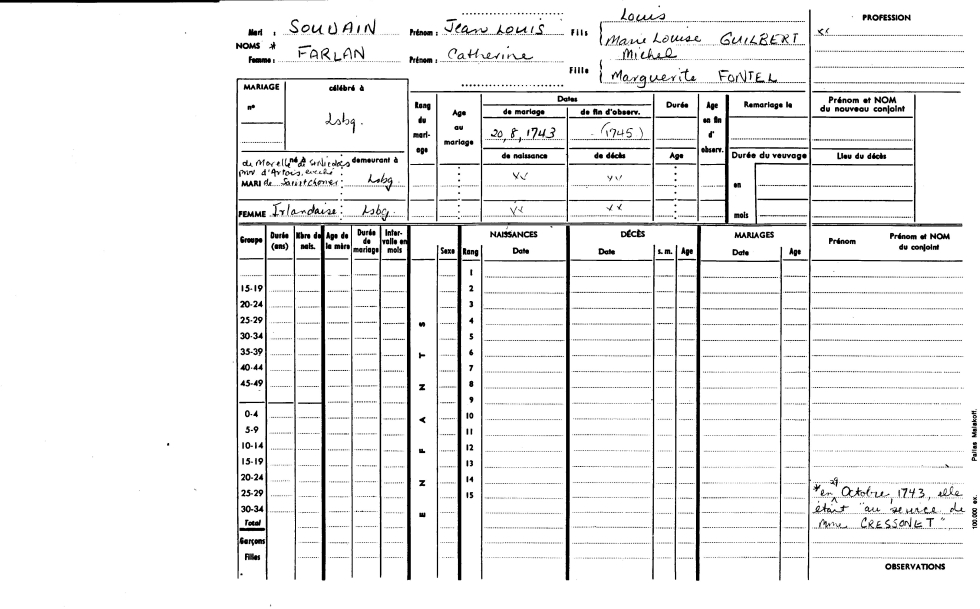 Louis
PROFESSION
Mari : SOUDAIN Prénom : Jean Louis Fils Marie Louise GUILBERT
NOMS *
Femme : FARLAN Prénom : Catherine Fille Michel
Marguerite FONTEL
MARIAGE célébré à
n°
Lsbg.
Rang du mari-age
Age au mariage
Dates
de mariage de fin d'observ.
20, 8, 1743 (1745)
de naissance de décès
Durée
Age
Age en fin d'observ.
Remariage le
Durée du veuvage
en
mois
Prénom et NOM
du nouveau conjoint
Lieu du décès
né à demeurant à
prov d'Artois, evché
MARI de Lsbg
FEMME Irlandaise : Lsbg.
Groupe Durée (ans) Nbre de nais. Age de la mère Durée de mariage Inter-valle en mois Sexe Rang
NAISSANCES DÉCÈS MARIAGES
Date Date s. m. Age Date Age
Prénom Prénom et NOM du conjoint
ENFANTS
1
15-19 2
20-24 3
25-29 4
30-34 5
35-39 6
40-44 7
45-49 8
9
0-4 10
5-9 11
10-14 12
15-19 13
20-24 14
25-29 15
30-34
Total
Garçons
Filles
* en 29 Octobre, 1743, elle
étant "au service de
Mme CRESSONET"
OBSERVATIONS
100.000 ex. Pallas Malakoff.